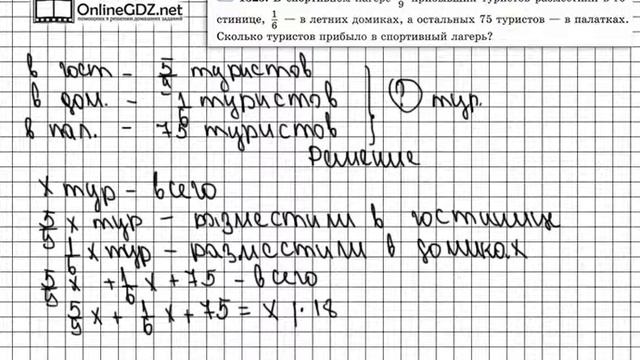 OnlineGDZ.net
помощник в решении домашних заданий
9
стинице, 1/6 — в летних домиках, а остальных 75 туристов — в палатках.
Сколько туристов прибыло в спортивный лагерь?
в гост – 5/9 туристов
в дом. – 1/6 туристов
в пал. – 75 туристов
? тур.
Решение
x тур – всего
5/9 x тур – разместили в гостинице
1/6 x тур – разместили в домиках
5/9 x + 1/6 x + 75 – всего
5/9 x + 1/6 x + 75 = x |·18